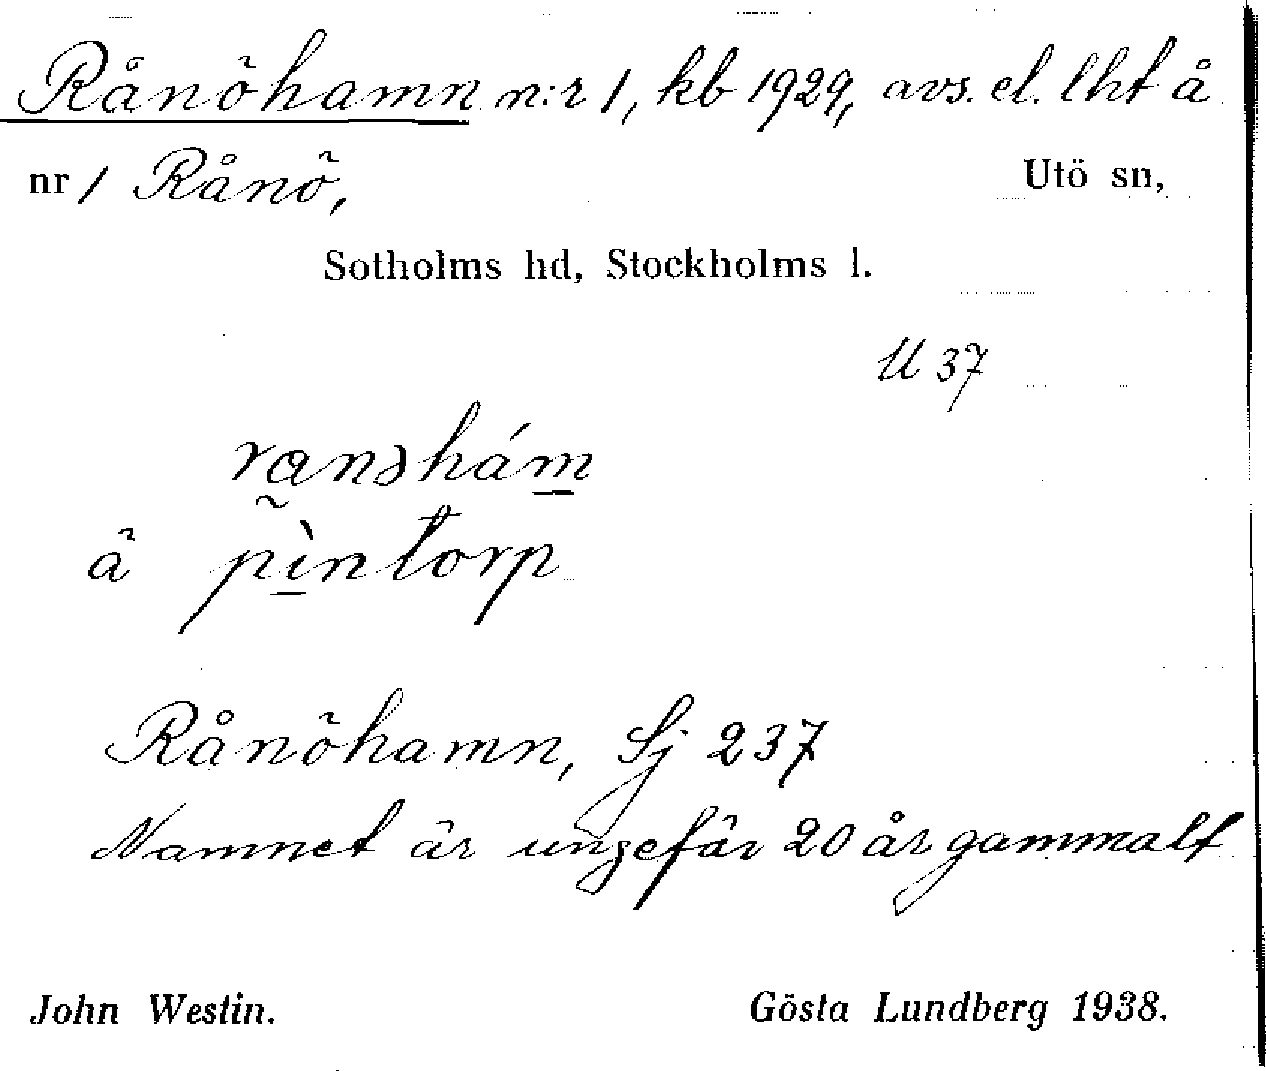 Rånöhamn n:r 1, kb 1929, avs. el. lht å
nr 1 Rånö, Utö sn,
Sotholms hd, Stockholms l.
U 37
ä pìntorp
Rånöhamn, Sj 237
Namnet är ungefär 20 år gammalt
John Westin. Gösta Lundberg 1938.